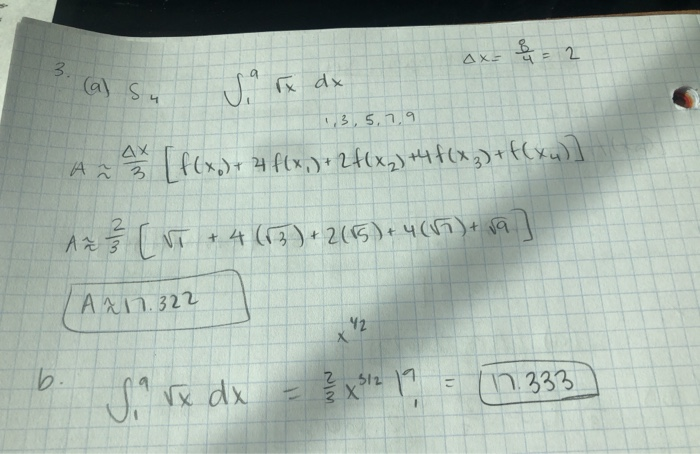 3. (a) S₄ ∫₁⁹ √x dx Δx = 8/4 = 2
1, 3, 5, 7, 9
A ≈ Δx/3 [f(x₀) + 4f(x₁) + 2f(x₂) + 4f(x₃) + f(x₄)]
A ≈ 2/3 [√1 + 4(√3) + 2(√5) + 4(√7) + √9]
A ≈ 17.322
x^1/2
b. ∫₁⁹ √x dx = 2/3 x^3/2 |₁⁹ = 17.333